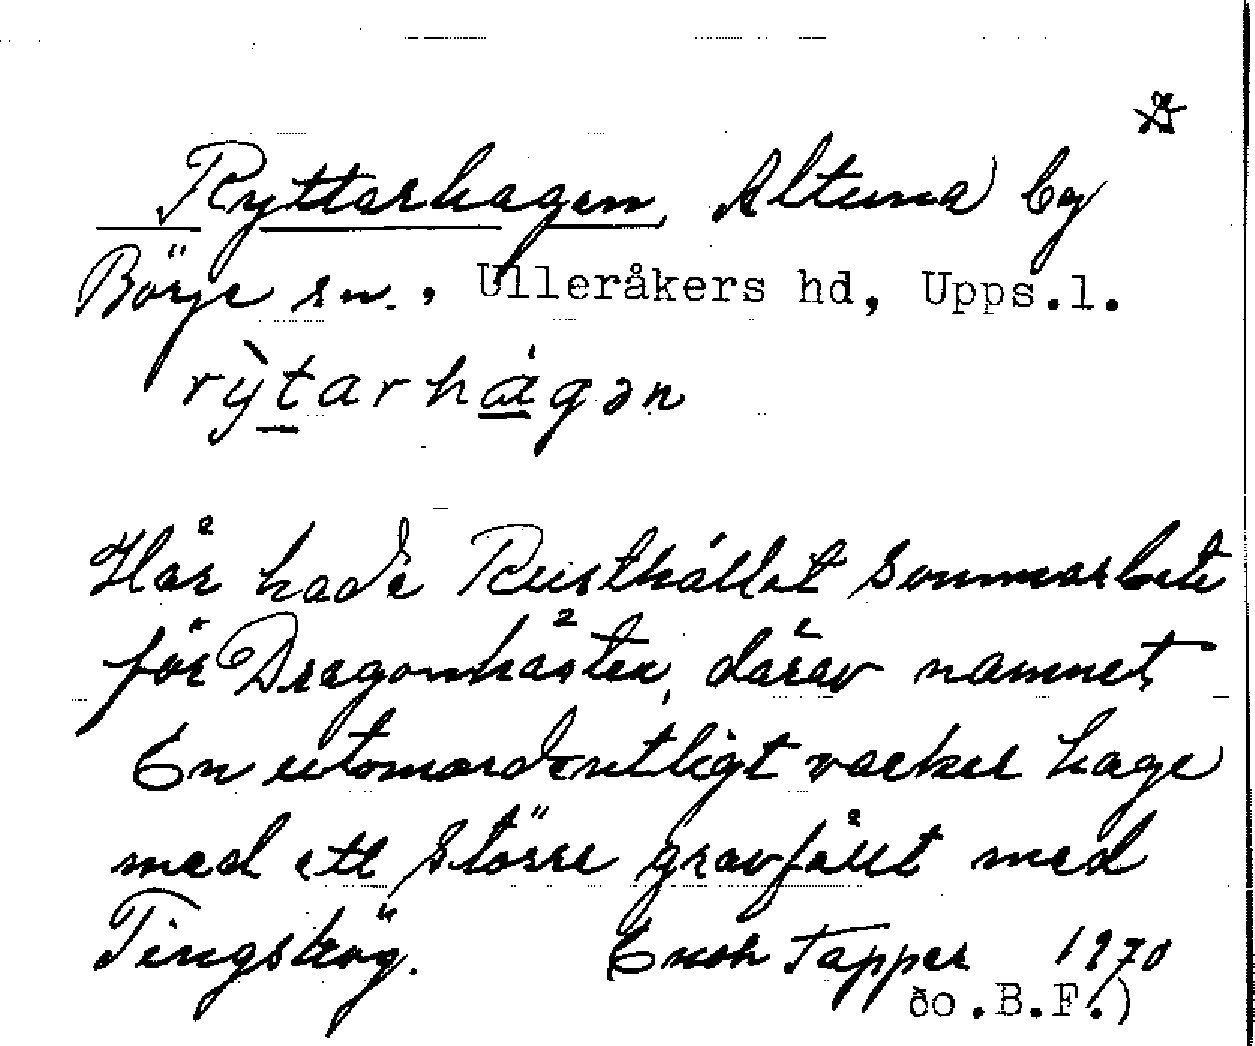 Ryttarhagen, Altuna by
Börje sn., Ulleråkers hd, Upps.l.
rỳtarhágən
Här hade Rusthållet sommarbete
för Dragonhästen, därav namnet
En utomordentligt vacker hage
med ett större gravfält med
Tingshög. Enoh Tapper 1970
(o.B.F.)